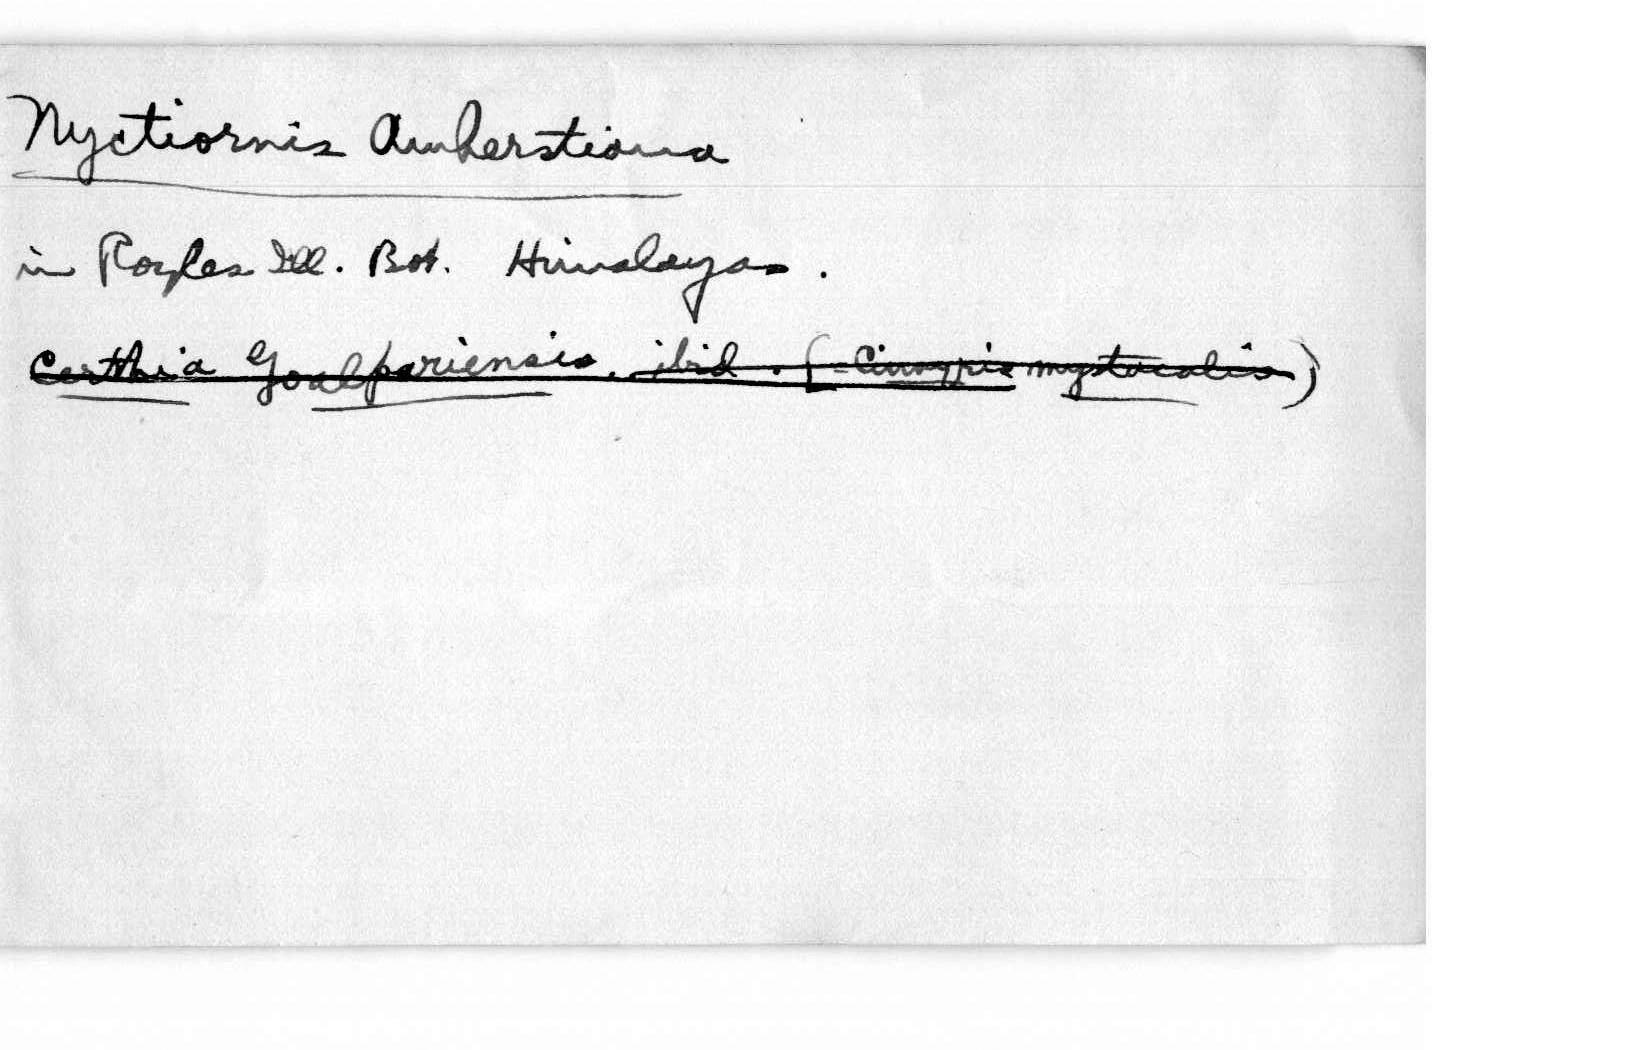 Nyctiornis Amherstiana
in Royles Ill. Bot. Himalayas.
Certhia Goalpariensis, ibid. (= Cinnyris mystacalis)